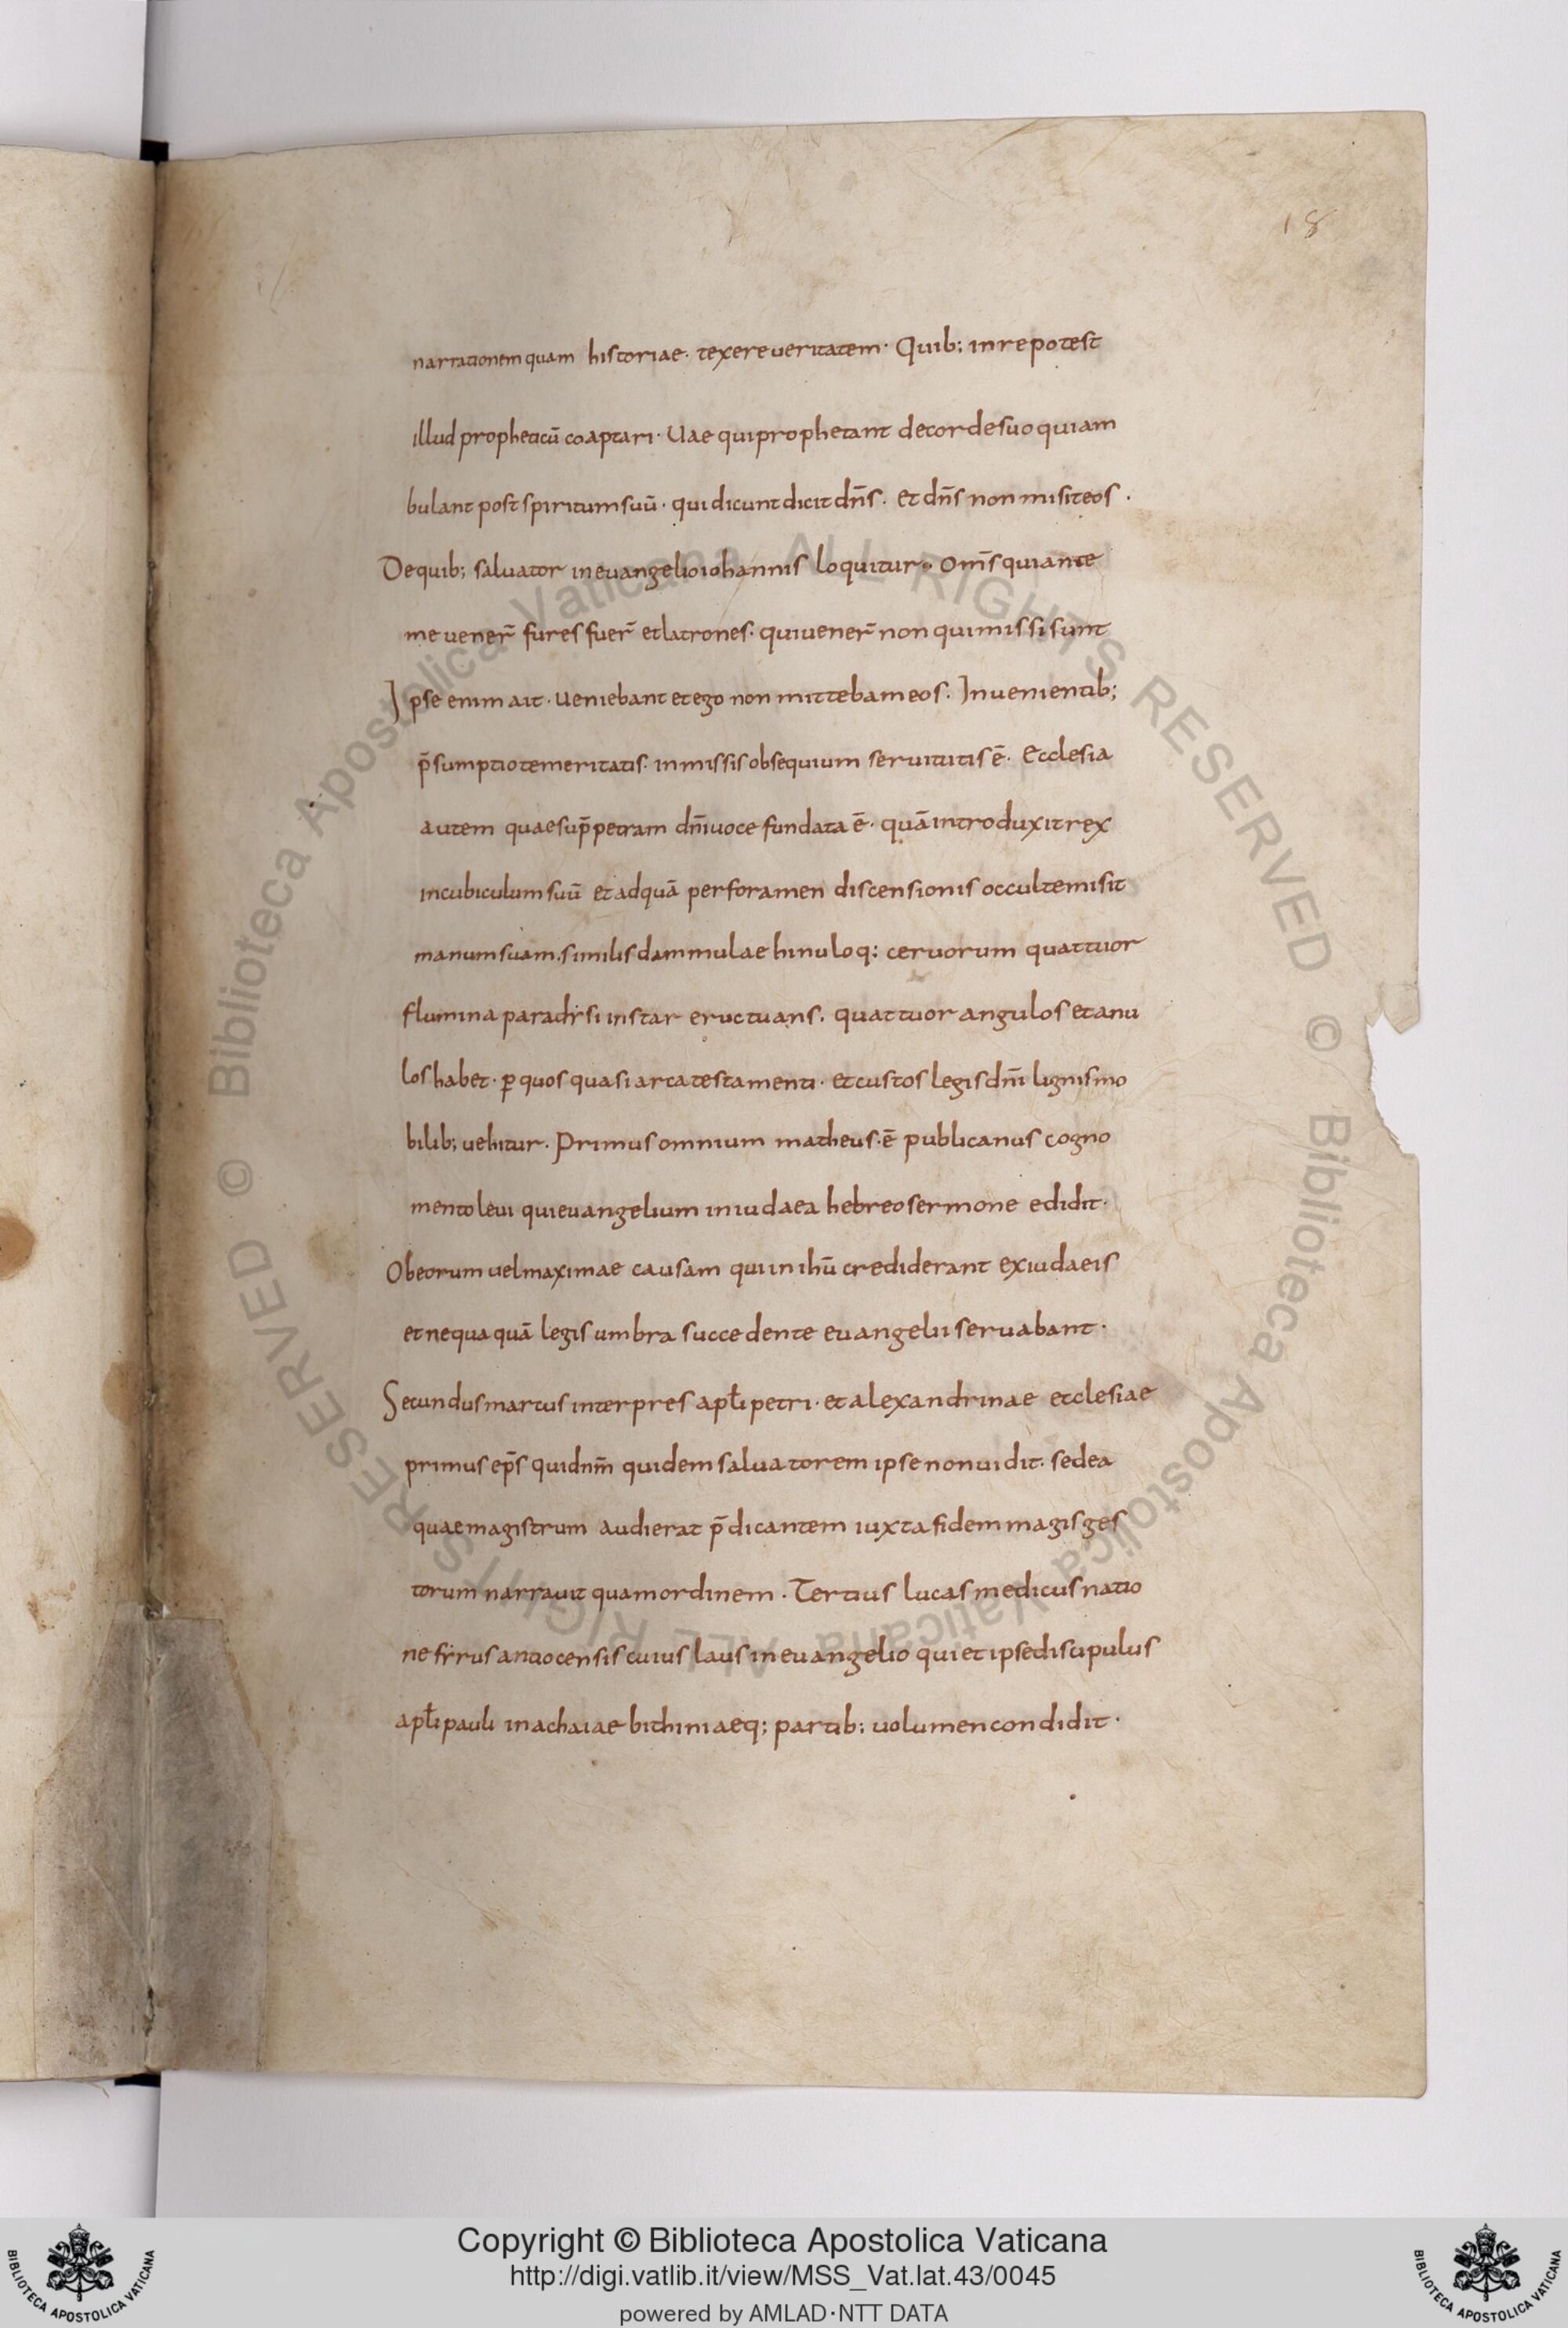 18
narrationem quam historiae· texere ueritatem· Quib; in re potest
illud propheticū coaptari· Uae qui prophetant de corde suo qui am
bulant post spiritum suū· qui dicunt dicit dn̄s· et dn̄s non misit eos·
De quib; saluator in euangelio iohannis loquitur· Om̄s qui ante
me uener̄ fures fuer̄ et latrones· qui uener̄ non qui missi sunt
Ipse enim ait· ueniebant et ego non mittebam eos· In uenientib;
p̄sumptio temeritatis· in missis obsequium seruitutis ē· Ecclesia
autem quae sup̄ petram dn̄i uoce fundata ē· quā introduxit rex
in cubiculum suū et ad quā per foramen discensionis occulte misit
manum suam· similis dammulae hinuloq; ceruorum quattuor
flumina paradysi instar eructuans· quattuor angulos et anu
los habet· ꝑ quos quasi arca testamenti· et custos legis dn̄i lignis mo
bilib; uehitur· Primus omnium matheus· ē publicanus cogno
mento leui qui euangelium in iudaea hebreo sermone edidit·
Ob eorum uel maximae causam qui in ihū crediderant ex iudaeis
et nequaquā legis umbra succedente euangelii seruabant·
Secundus marcus interpres apłi petri· et alexandrinae ecclesiae
primus ep̄s qui dnm̄ quidem saluatorem ipse non uidit· sed ea
quae magistrum audierat p̄dicantem iuxta fidem magis ges
torum narrauit quam ordinem· Tertius lucas medicus natio
ne syrus antiocensis cuius laus in euangelio qui et ipse discipulus
apłi pauli in achaiae bithiniaeq; partib; uolumen condidit·
© Biblioteca Apostolica Vaticana ALL RIGHTS RESERVED © Biblioteca Apostolica Vaticana ALL RIGHTS RESERVED
Copyright © Biblioteca Apostolica Vaticana
http://digi.vatlib.it/view/MSS_Vat.lat.43/0045
powered by AMLAD·NTT DATA
BIBLIOTECA APOSTOLICA VATICANA
BIBLIOTECA APOSTOLICA VATICANA